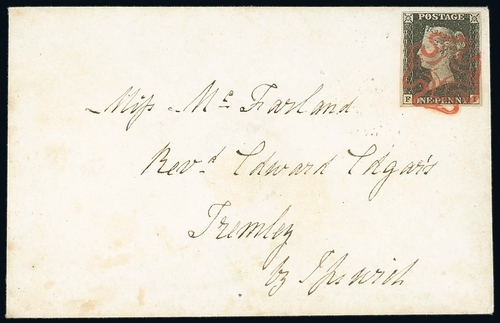 POSTAGE
ONE PENNY
Miss Mc Farland
Revd Edward Edgar's
Tremley
by Ipswich